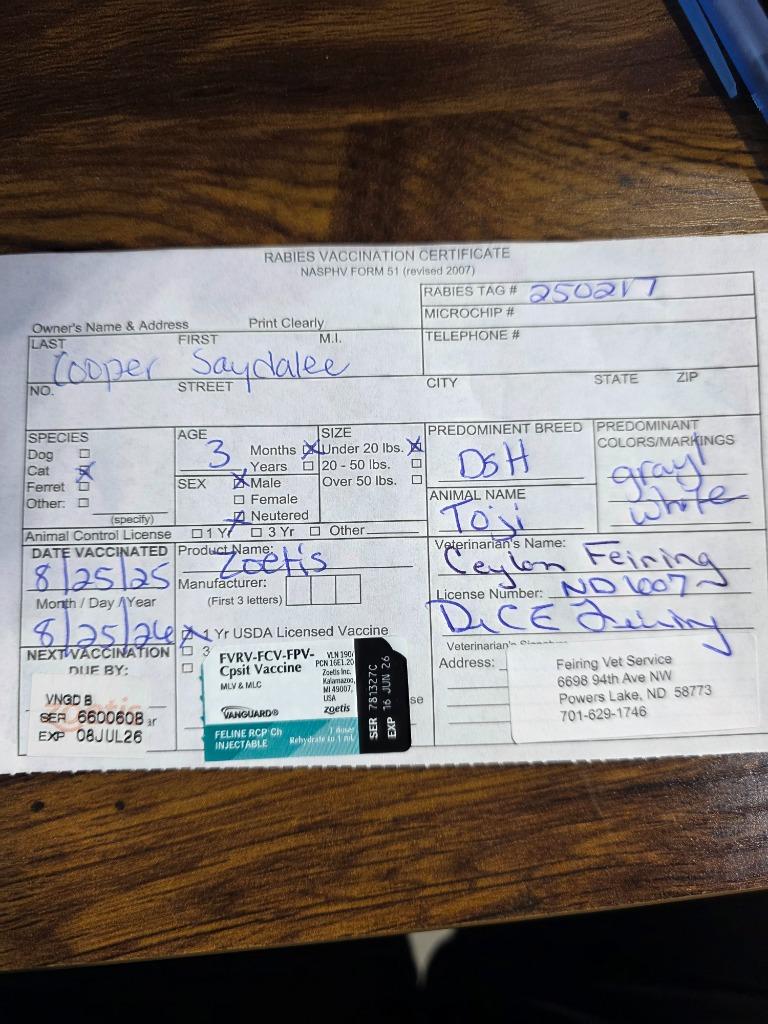 RABIES VACCINATION CERTIFICATE
NASPHV FORM 51 (revised 2007)
RABIES TAG # 2502217
MICROCHIP #
Owner's Name & Address Print Clearly
TELEPHONE #
LAST FIRST M.I.
Cooper Saydalee
NO. STREET CITY STATE ZIP
SPECIES
Dog
Cat
Ferret
Other:
(specify)
AGE
3 Months
Years
SEX
Male
Female
Neutered
SIZE
Under 20 lbs.
20 - 50 lbs.
Over 50 lbs.
PREDOMINENT BREED
DSH
ANIMAL NAME
Toji
PREDOMINANT
COLORS/MARKINGS
gray/
white
Animal Control License 1 Yr 3 Yr Other
DATE VACCINATED
8/25/25
Month / Day / Year
8/25/26
NEXT VACCINATION
DUE BY:
Product Name: Zoetis
Manufacturer:
(First 3 letters)
1 Yr USDA Licensed Vaccine
3
Veterinarian's Name:
Ceylon Feiring
License Number: ND 1607
Dr CE Feiring
Veterinarian's
Address:
VNGD B
SER 660060B
EXP 08JUL26
FVRV-FCV-FPV-
Cpsit Vaccine
MLV & MLC
VLN 190/
PCN 16E1.20
Zoetis Inc.
Kalamazoo,
MI 49007,
USA
VANGUARD®
zoetis
FELINE RCP Ch
INJECTABLE
Rehydrate to 1 mL
SER 781327C
EXP 16 JUN 26
Feiring Vet Service
6698 94th Ave NW
Powers Lake, ND 58773
701-629-1746